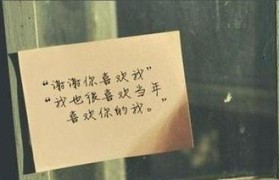 “谢谢你喜欢我”
“我也很喜欢当年
喜欢你的我。”